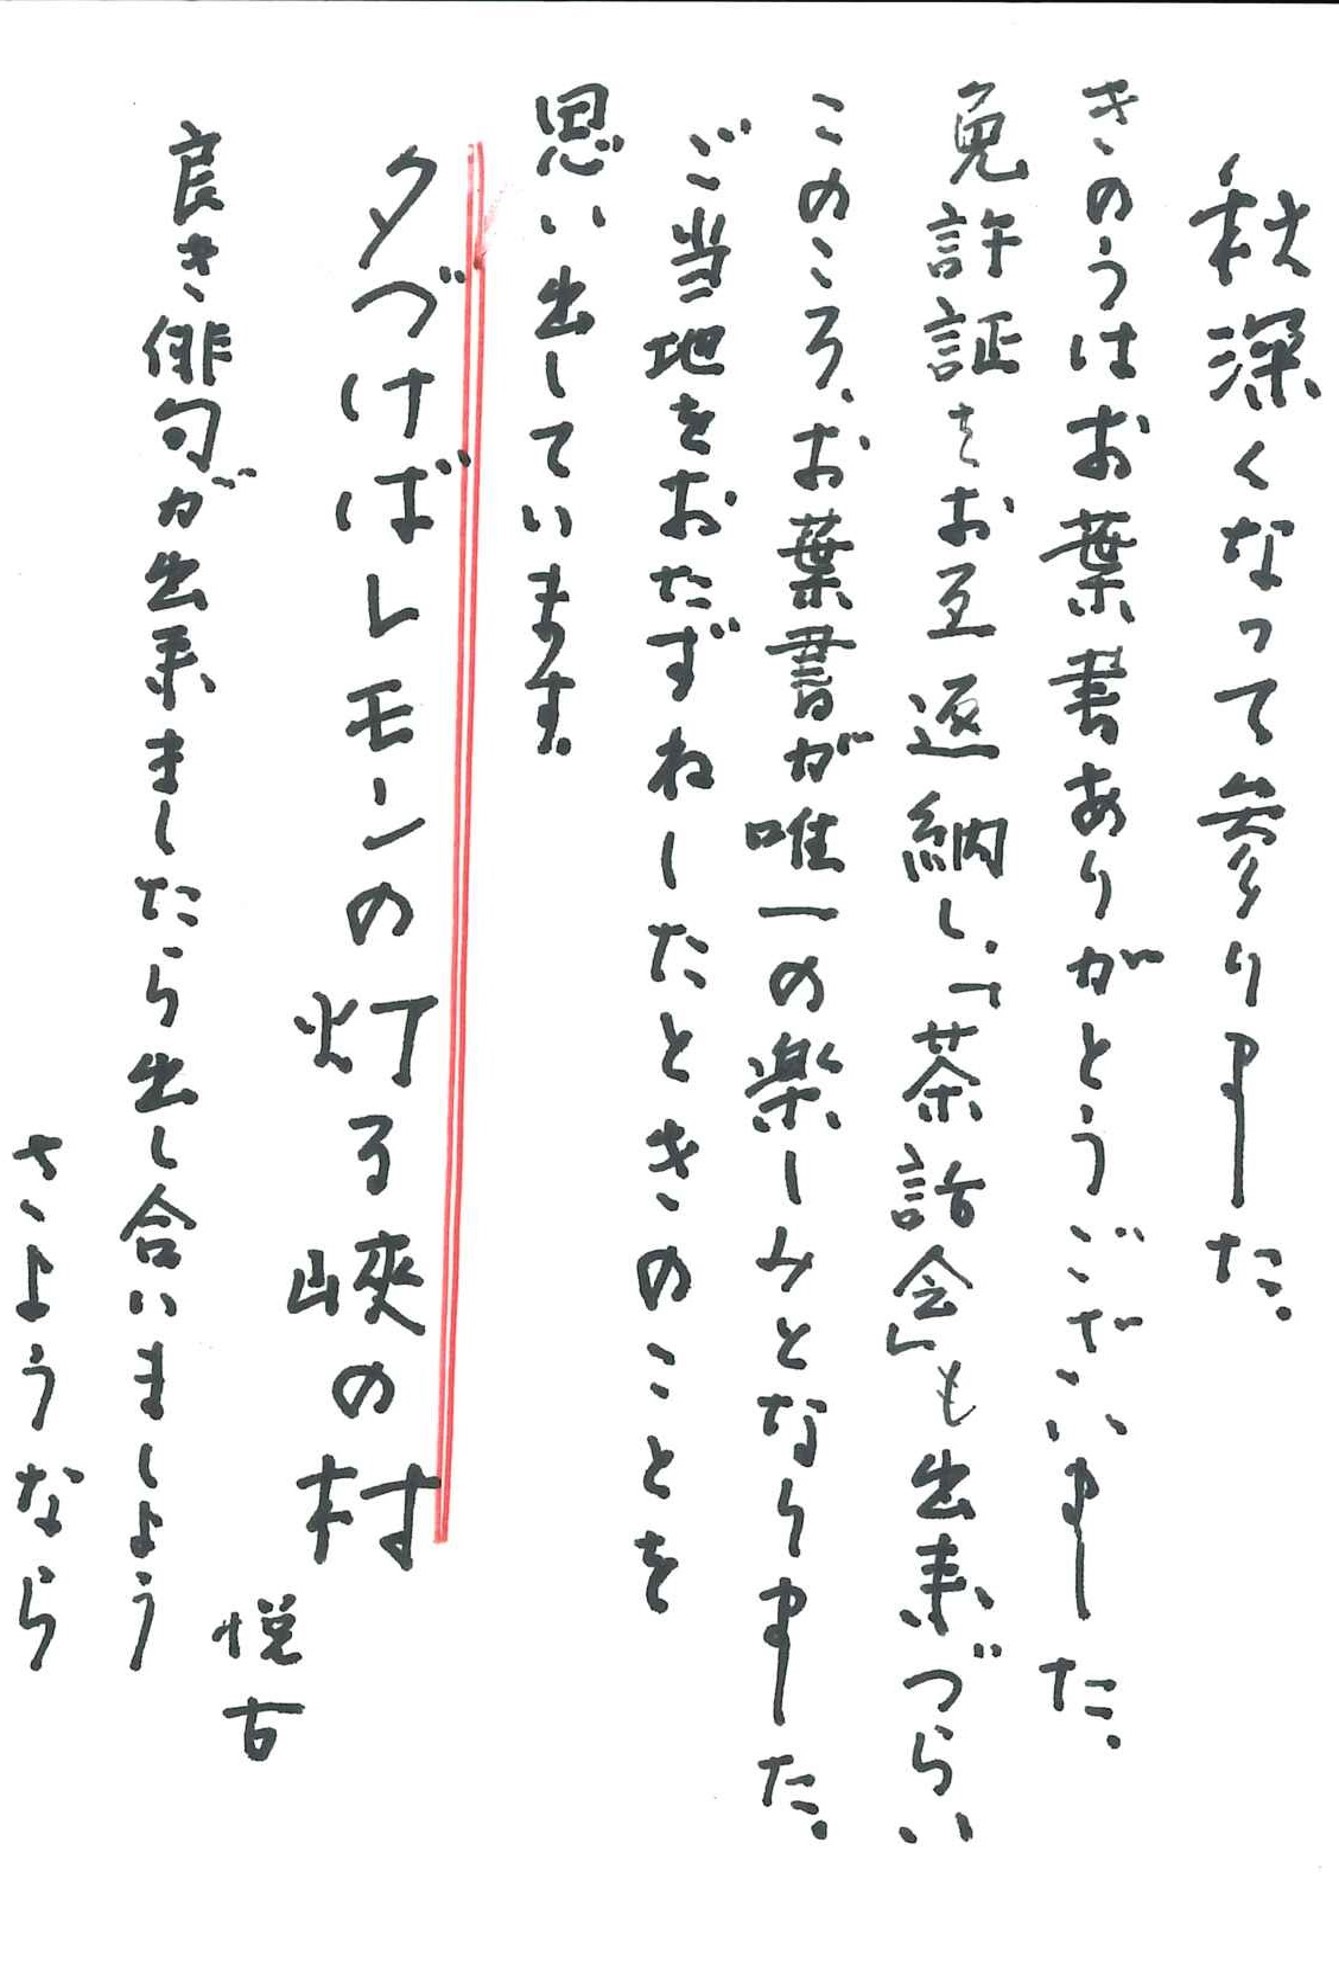 秋深くなって参りました。
きのうはお葉書ありがとうございました。
免許証をお互返納し、「茶話会」も出来づらい
このころ、お葉書が唯一の楽しみとなりました。
ご当地をおたずねしたときのことを
思い出しています。
夕づけばレモンの灯る峡の村
悦古
良き俳句が出来ましたら出し合いましょう
さようなら